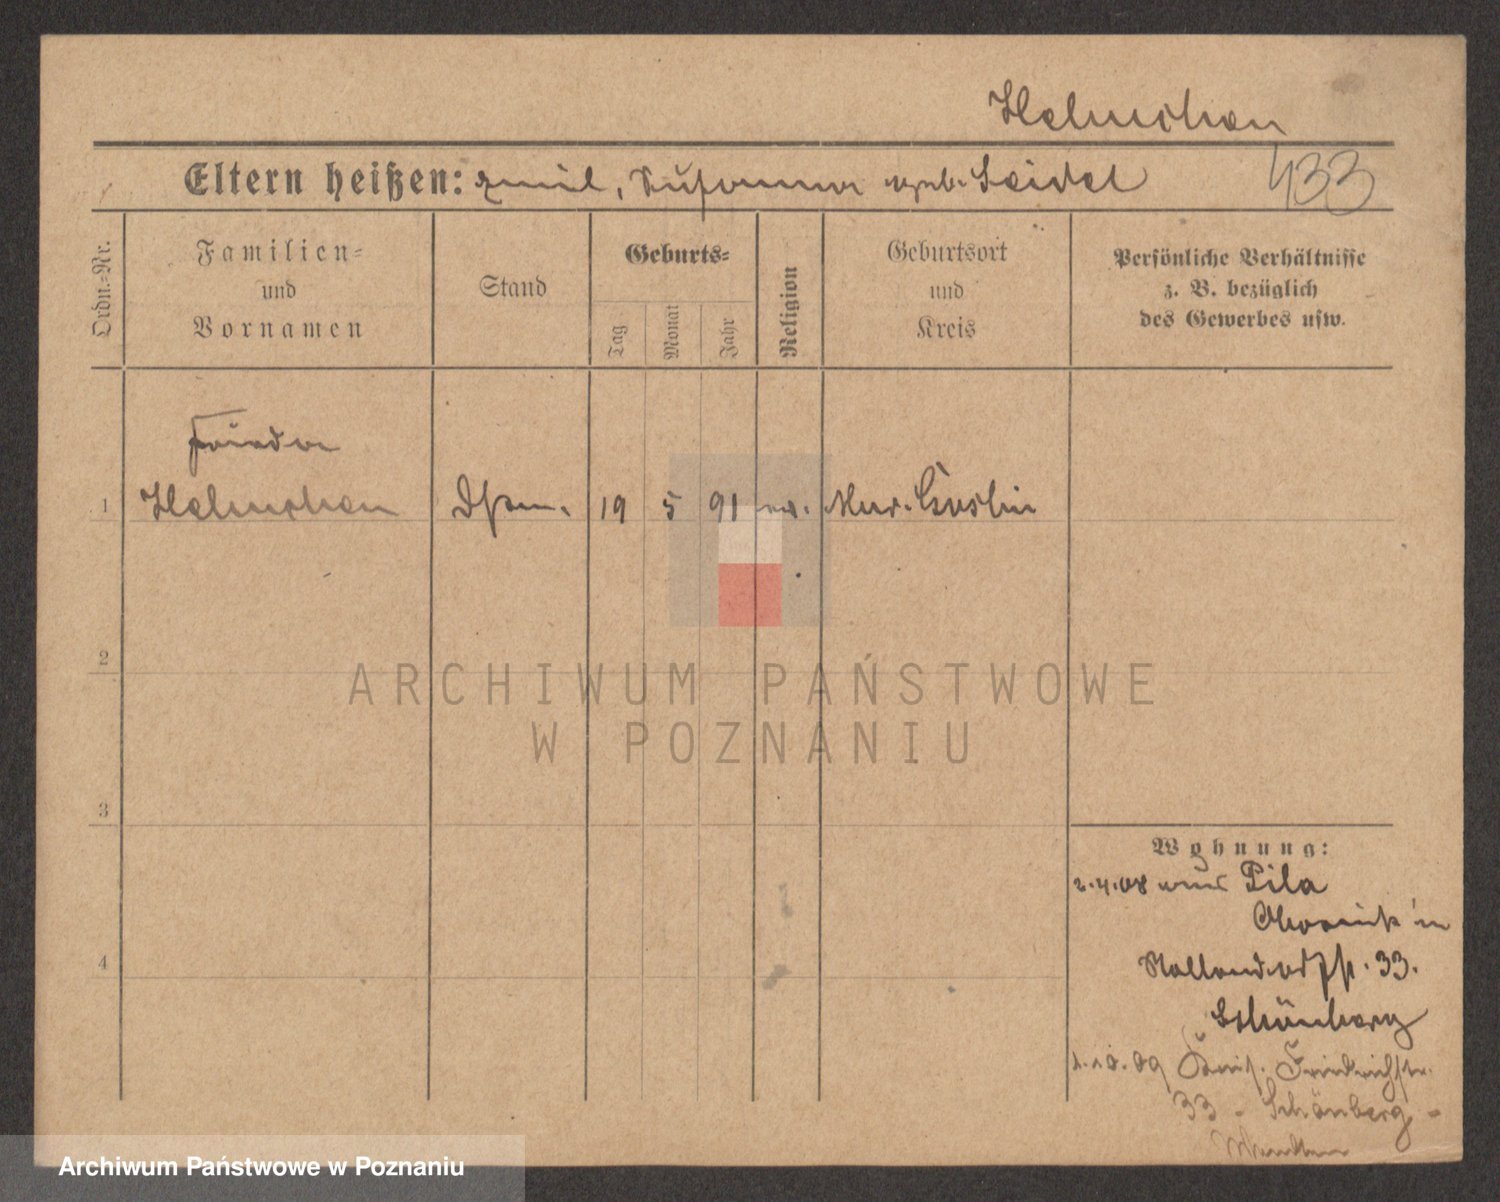 Helmchen
Eltern heißen: Emil, Susanna geb. Seidel 433
Ordn.-Nr.
Familien-
und
Vornamen
Stand
Geburts-
Tag
Monat
Jahr
Religion
Geburtsort
und
Kreis
Persönliche Verhältnisse
z. B. bezüglich
des Gewerbes usw.
Frieda
1 Helmchen 19 5 91 ev. Mur. Goslin
2
3
4
Wohnung:
2.4.08 Pila
Obornik in
33.
Schönberg
1.10.09 Friedrichstr.
33 - Schönberg -
ARCHIWUM PAŃSTWOWE
W POZNANIU
Archiwum Państwowe w Poznaniu